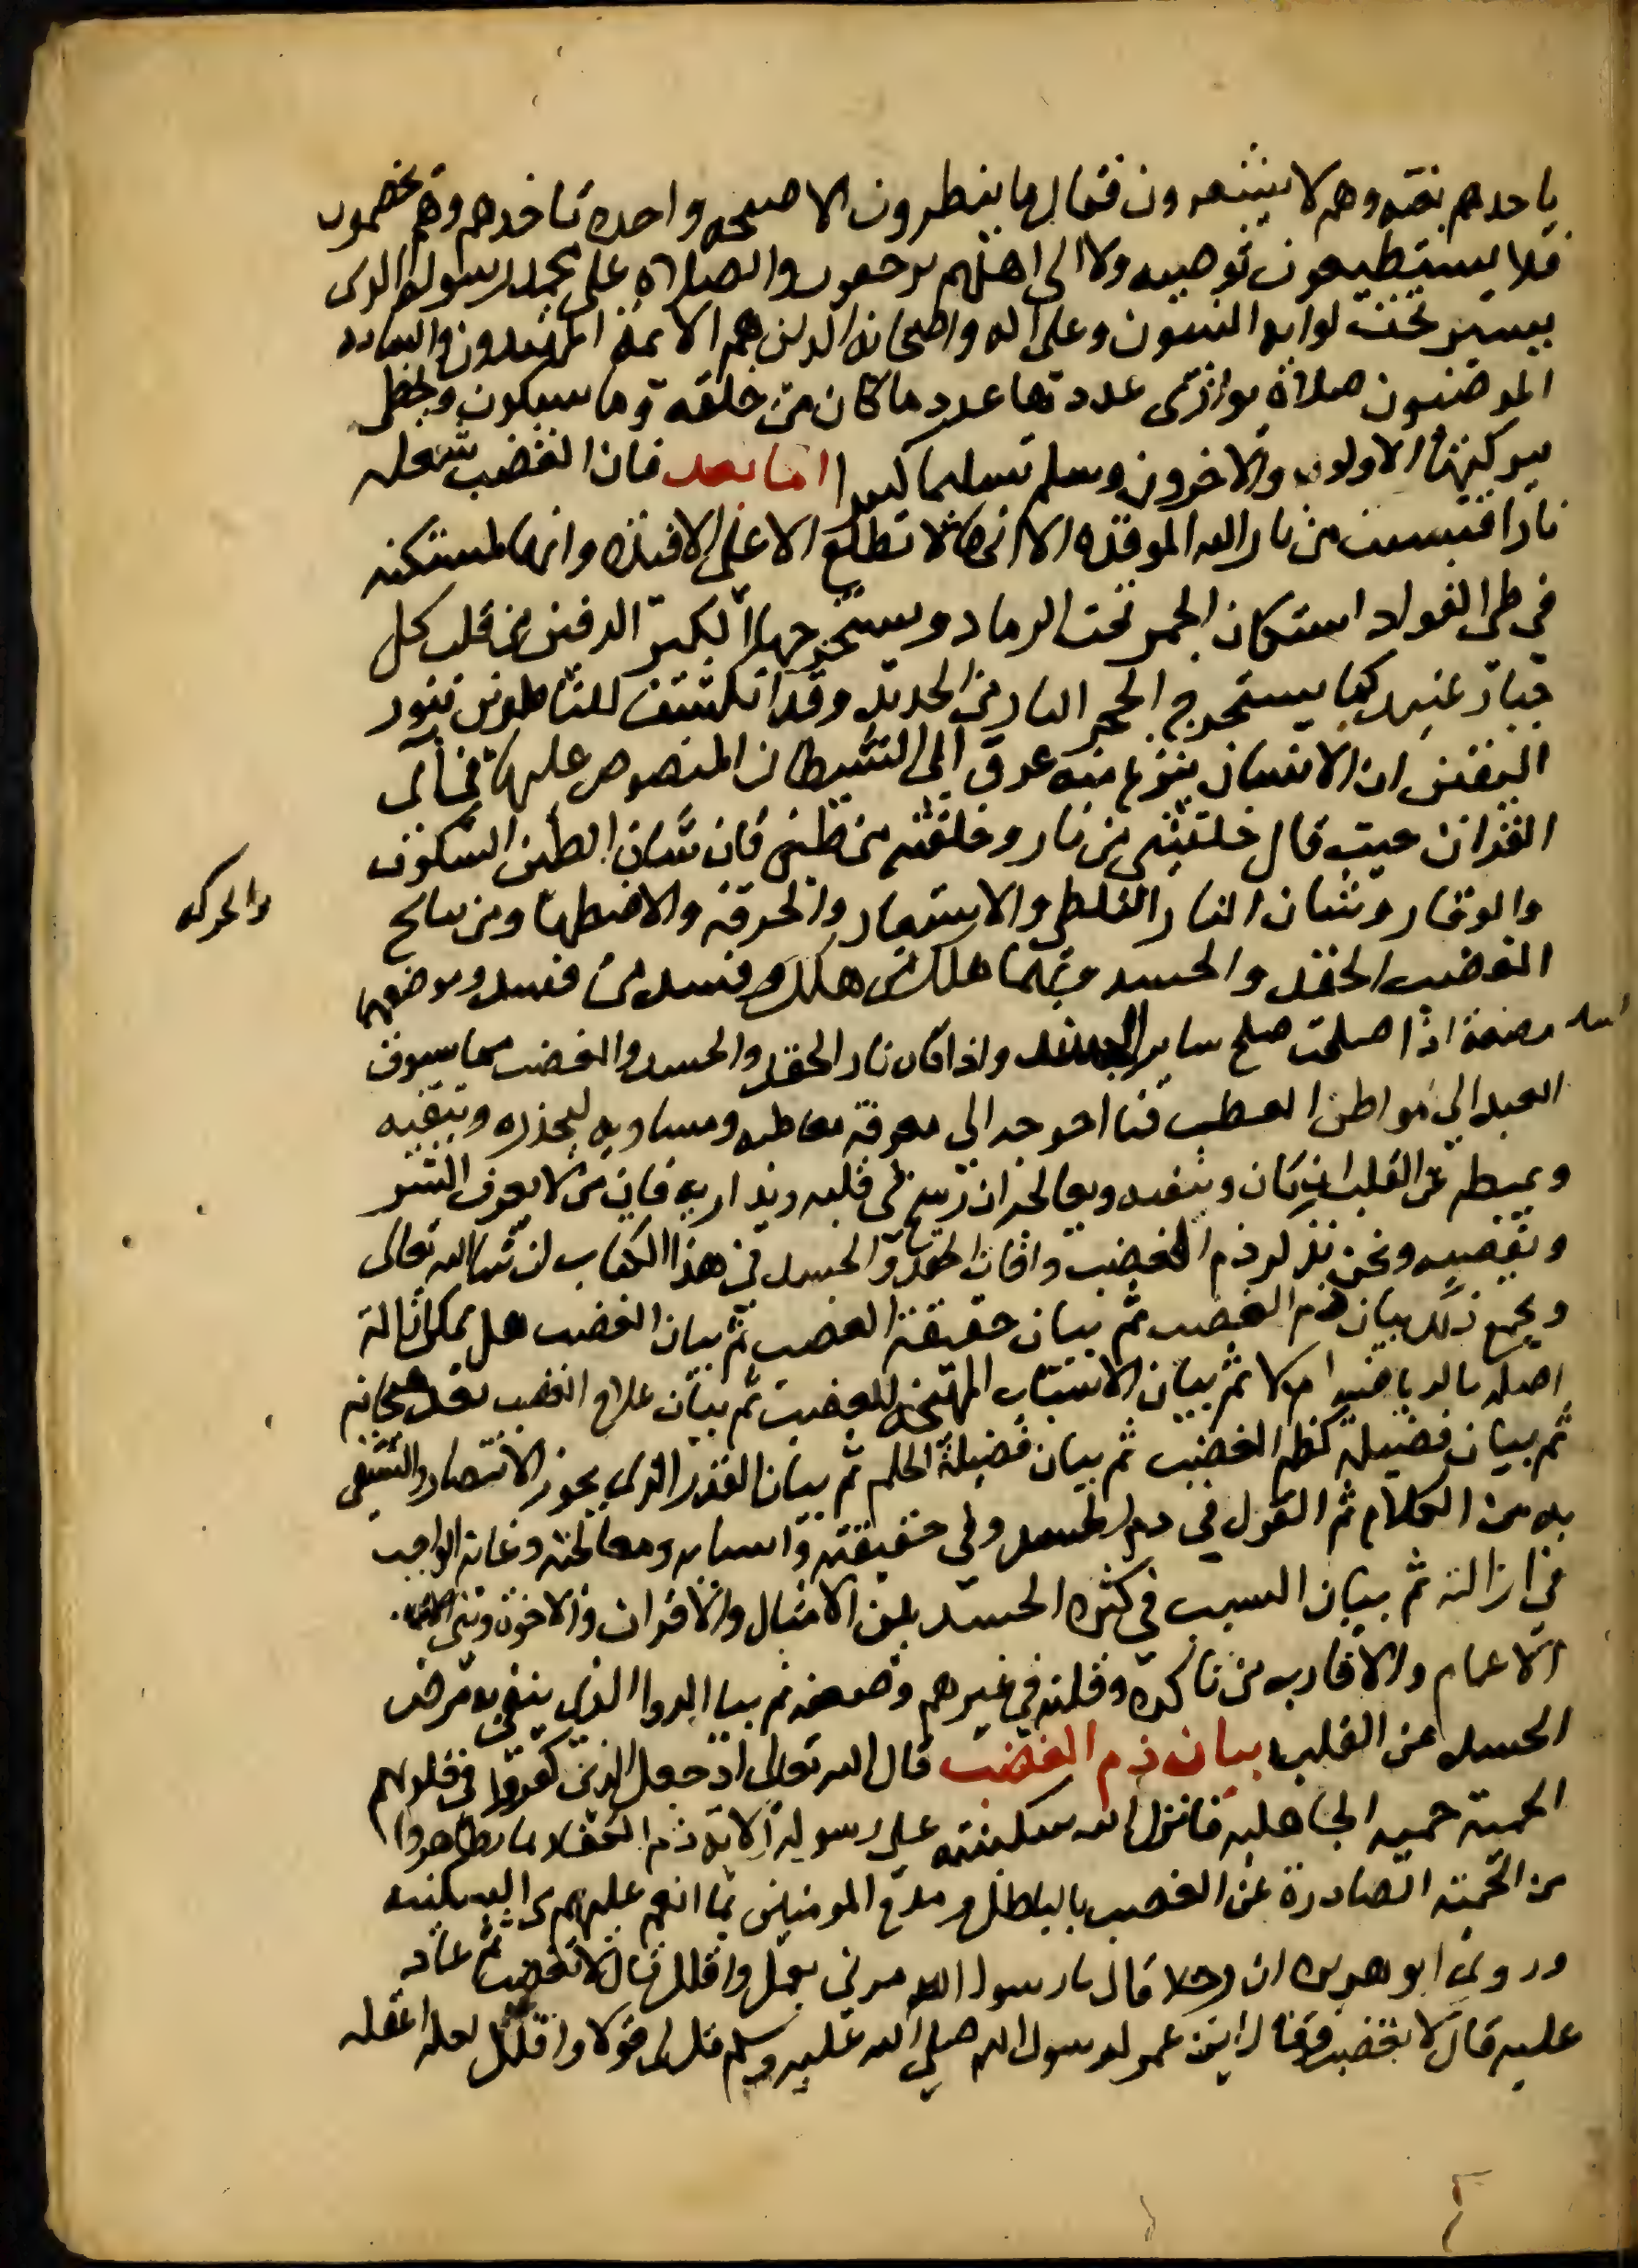 ياخدهم بغته وهم لا يشعرون فقال ما ينظرون الا صيحه واحده تاخدهم وهم يخصمون
فلا يستطيعون توصيه ولا الى اهلهم يرجعون والصلاة على محمد رسوله الدى
يسير تحت لوايه النبيون وعلى اله واصحابه الدين هم الايمة المهتدون والساده
المرضيون صلاة يوازى عددها عدد ما كان من خلقه وما سيكون ويحظى
ببركتها الاولون والاخرون وسلم تسليما كثيرا اما بعد فان الغضب شعله
نار اقتبست من نار الله الموقده الا انها لا تطلع الا على الافئده وانها لمستكنه
في طى الفواد استكان الجمر تحت الرماد ويستخرجها الكبر الدفين من قلب كل
جبار عنيد كما يستخرج الحجر النار من الحديد وقد انكشف للناظرين بنور
اليقين ان الانسان ينزع منه عرق الى الشيطان المنصوص عليه في آى
القران حيث قال خلقتنى من نار وخلقته من طين فان شان الطين السكون
والوقار وشان النار التلظى والاستعار والحرقه والاضطها ومن نتايج
والحركه
الغضب الحقد والحسد وبهما هلك من هلك وفسد من فسد وموضعهما
مضغة اذا صلحت صلح ساير الجسد واذا كان نار الحقد والحسد والغضب مما يسوق
العبد الى مواطن العطب فما احوجه الى معرفة معاطبه ومساويه ليحذره ويتقيه
ويميطه عن القلب ان كان وينفيه ويعالجه ان رسخ فى قلبه ويداريه فان من لا يعرف الشر
ونحن نذكر ذم الغضب وافات الحقد والحسد في هذا الكتاب ان شا الله تعالى
ويجمع ذلك بيان ذم الغضب ثم بيان حقيقة الغضب ثم بيان الغضب هل يمكن ازالة
اصله بالرياضه ام لا ثم بيان الاسباب المهيجه للغضب ثم بيان علاج الغضب بعد هيجانه
ثم بيان فضيلة كظم الغضب ثم بيان فضيلة الحلم ثم بيان القدر الذى يجوز الانتصار والتشفى
به من الكلام ثم القول في ذم الحسد وفي حقيقته واسبابه ومعالجته وغاية الواجب
في ازالته ثم بيان السبب في كثرة الحسد بين الامثال والاقران والاخوة وبنى
الاعمام والاقارب من تاكده وقلته في غيرهم وضعفه ثم بيا الدوا الذى ينفى به مرض
الحسد عن القلب بيان ذم الغضب قال الله تعالى اذ جعل الذين كفروا في قلوبهم
الحمية حميه الجاهليه فانزل الله سكينته على رسوله الايه ذم الكفار بما تظاهروا
من الحمية الصادرة عن الغضب بالباطل ومدح المومنين بما انعم عليهم من السكينه
وروى ابو هريره ان رجلا قال يا رسول الله مرنى بعمل واقلل قال لا تغضب ثم عاد
عليه قال لا تغضب وقال ابن عمر لرسول الله صلى الله عليه وسلم قل لى قولا واقلل لعلى اعقله